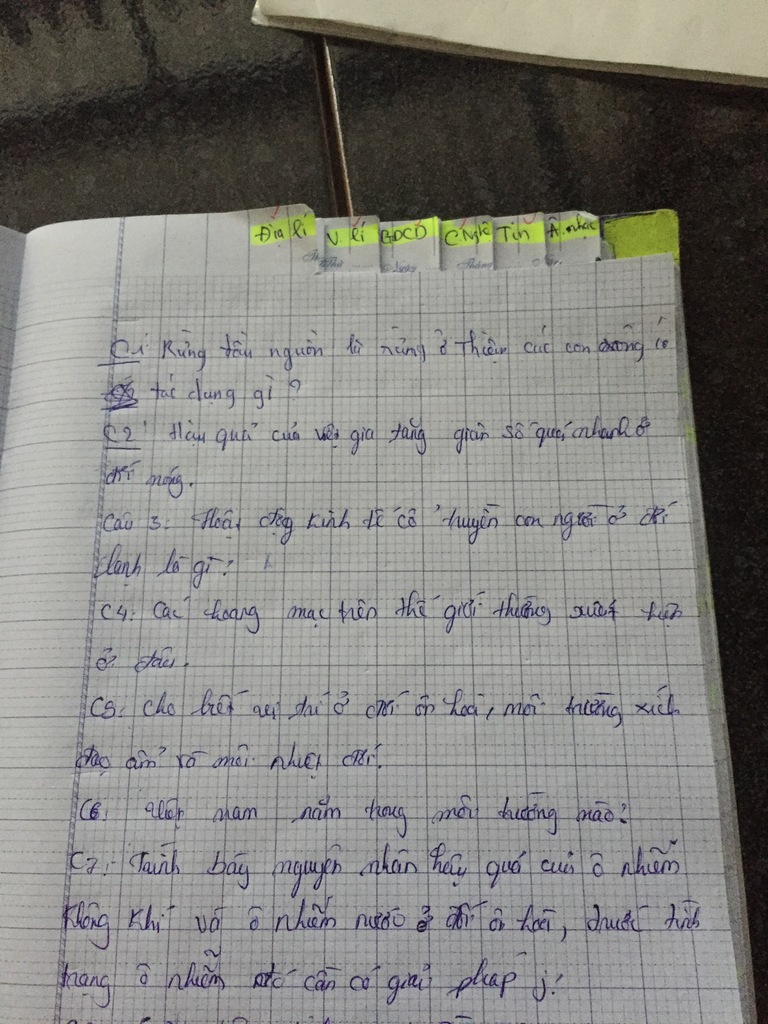 Địa lí V. lí GDCD C Nghệ Tin Â. nhạc
C1: Rừng đầu nguồn là rừng ở các con sông có
tác dụng gì?
C2: Hậu quả của việc gia tăng dân số quá nhanh ở
đới nóng.
Câu 3: Hoạt động kinh tế cổ truyền con người ở đới
lạnh là gì?
C4: Các hoang mạc trên thế giới thường xuất hiện
ở đâu.
C5: cho biết vị trí ở đới ôn hoà, môi trường xích
đạo ẩm và môi nhiệt đới.
C6: Việt nam nằm trong môi trường nào?
C7: Trình bày nguyên nhân hậu quả của ô nhiễm
không khí và ô nhiễm nước ở đới ôn hoà, trước tình
trạng ô nhiễm đó cần có giải pháp j?